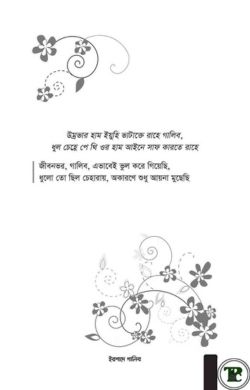 উম্রভার হাম ইয়ুহি ভাটাক্তে রাহে গালিব,
ধুল চেহ্রে পে থি ওর হাম আইনে সাফ কারতে রাহে
জীবনভর, গালিব, এভাবেই ভুল করে গিয়েছি,
ধুলো তো ছিল চেহারায়, অকারণে শুধু আয়না মুছেছি
ইরশাদে গালিব